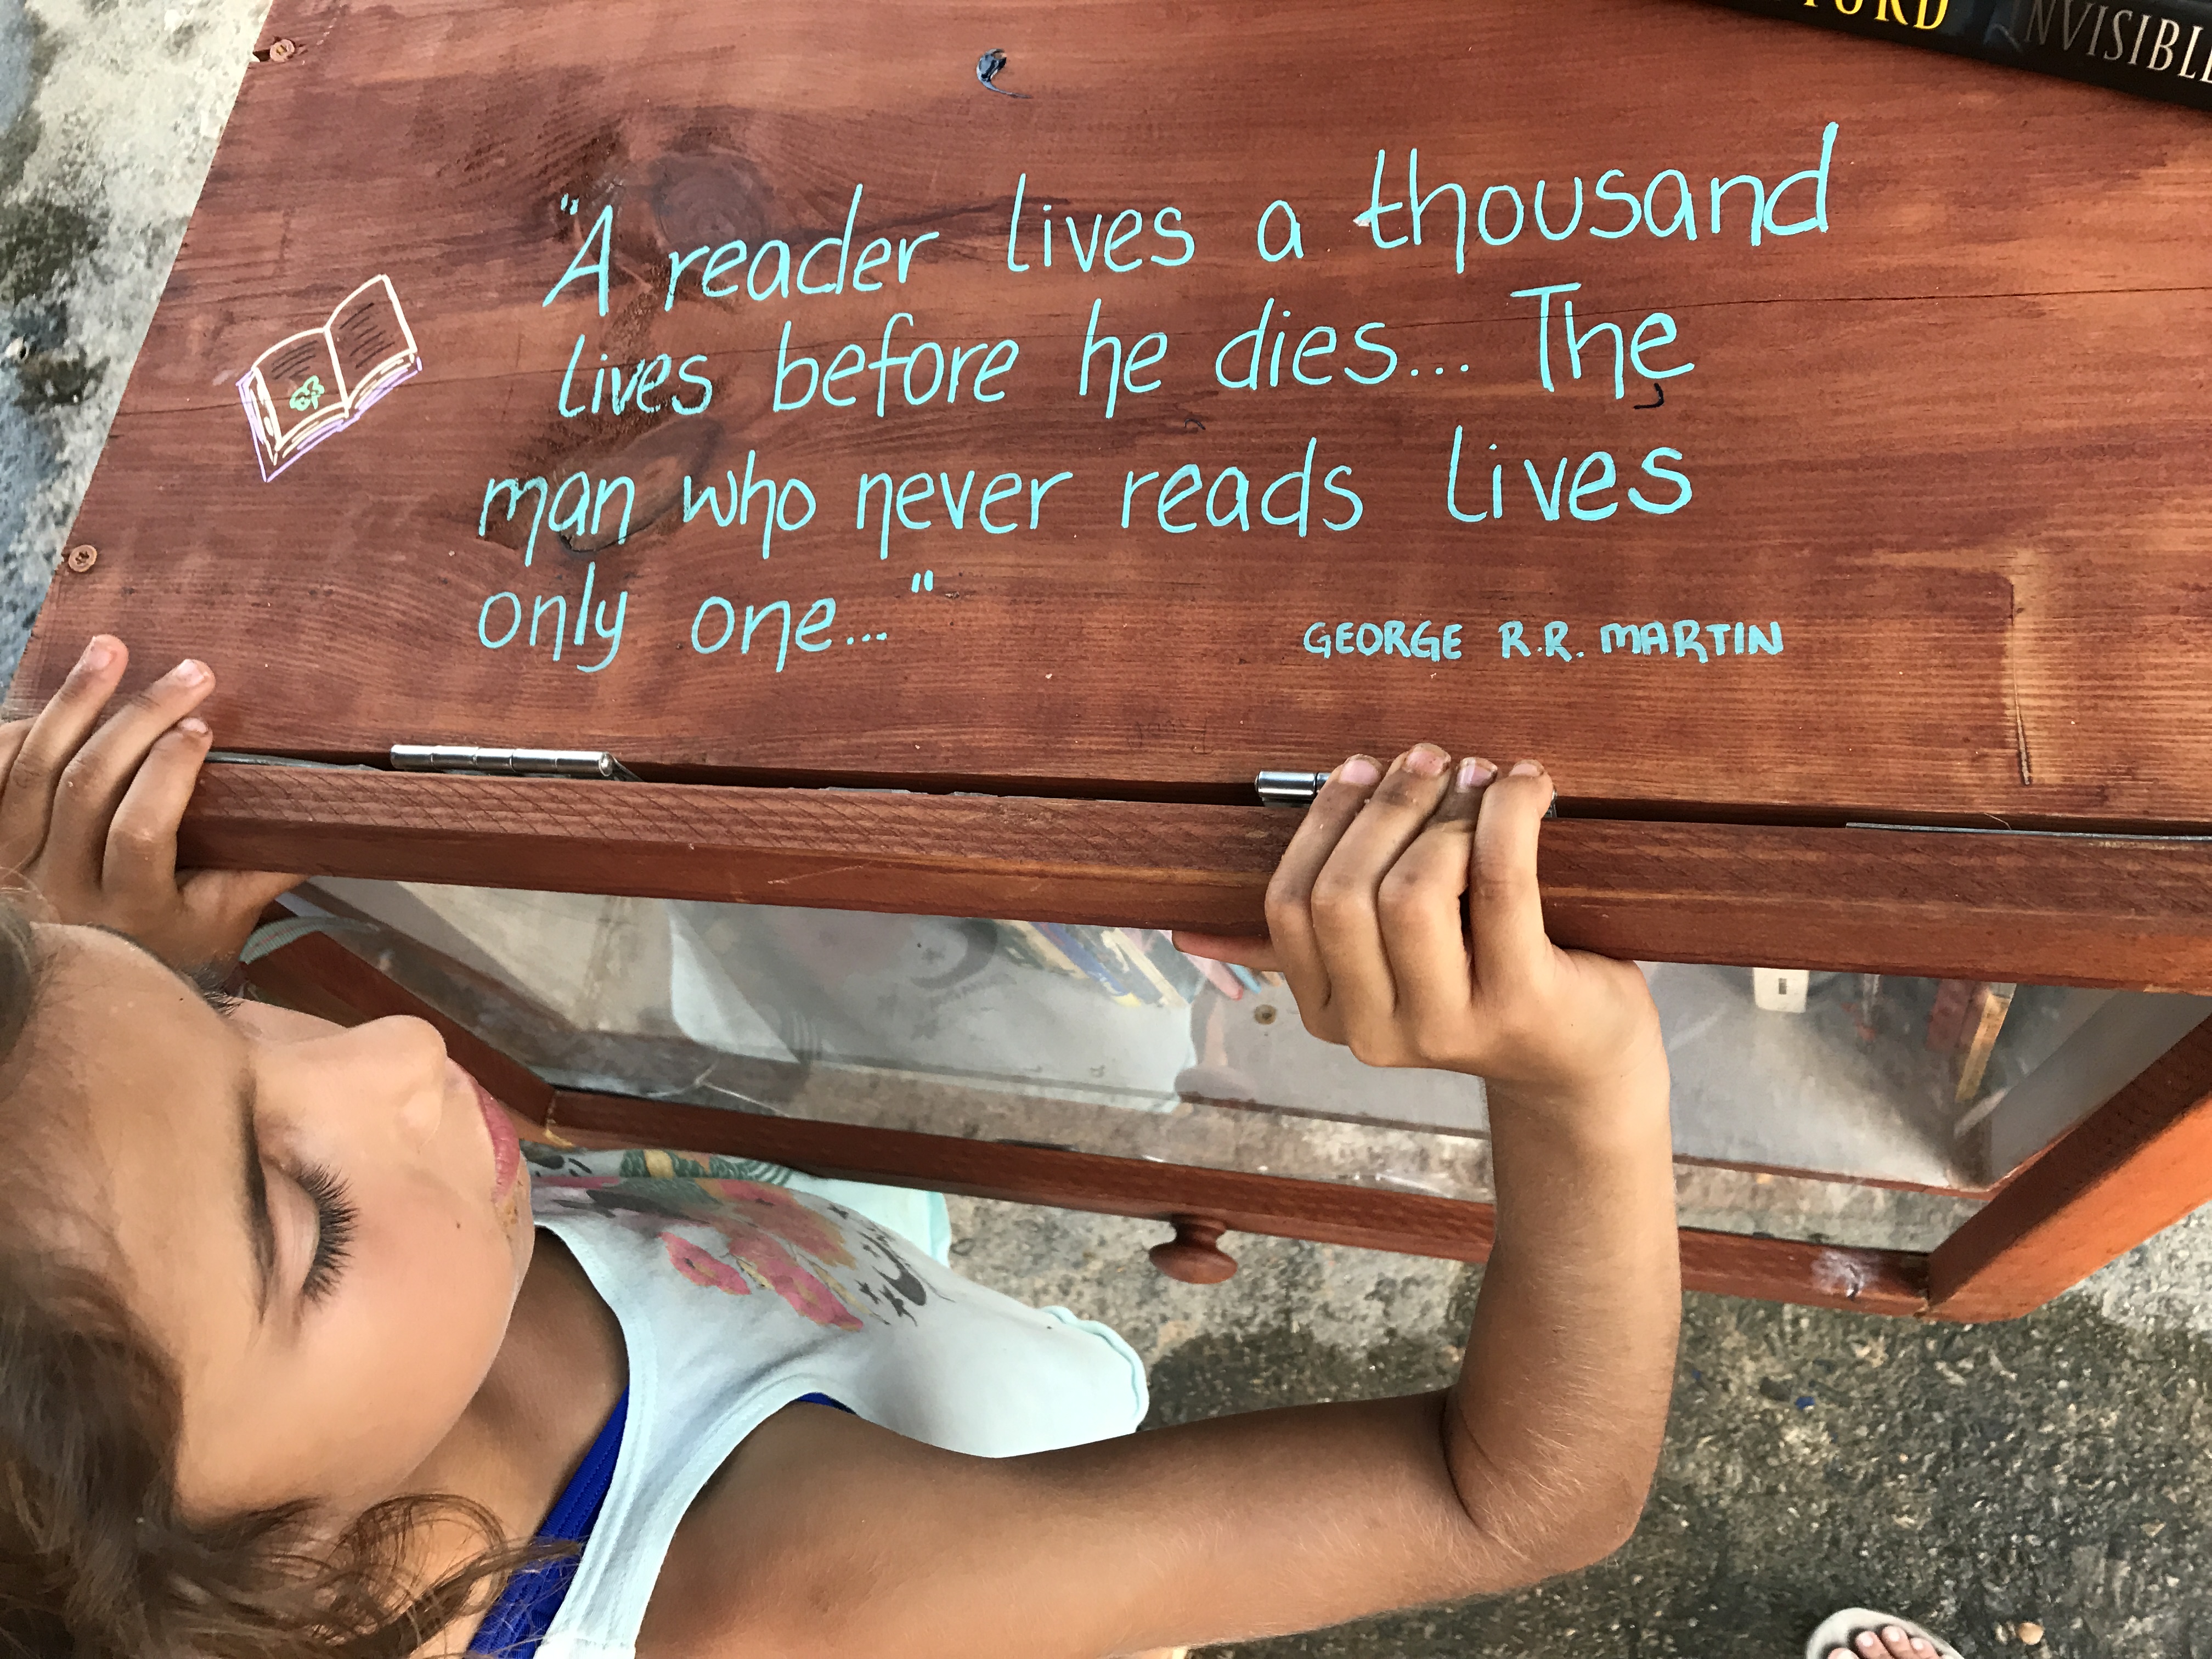 "A reader lives a thousand
lives before he dies... The
man who never reads lives
only one..."
GEORGE R.R. MARTIN